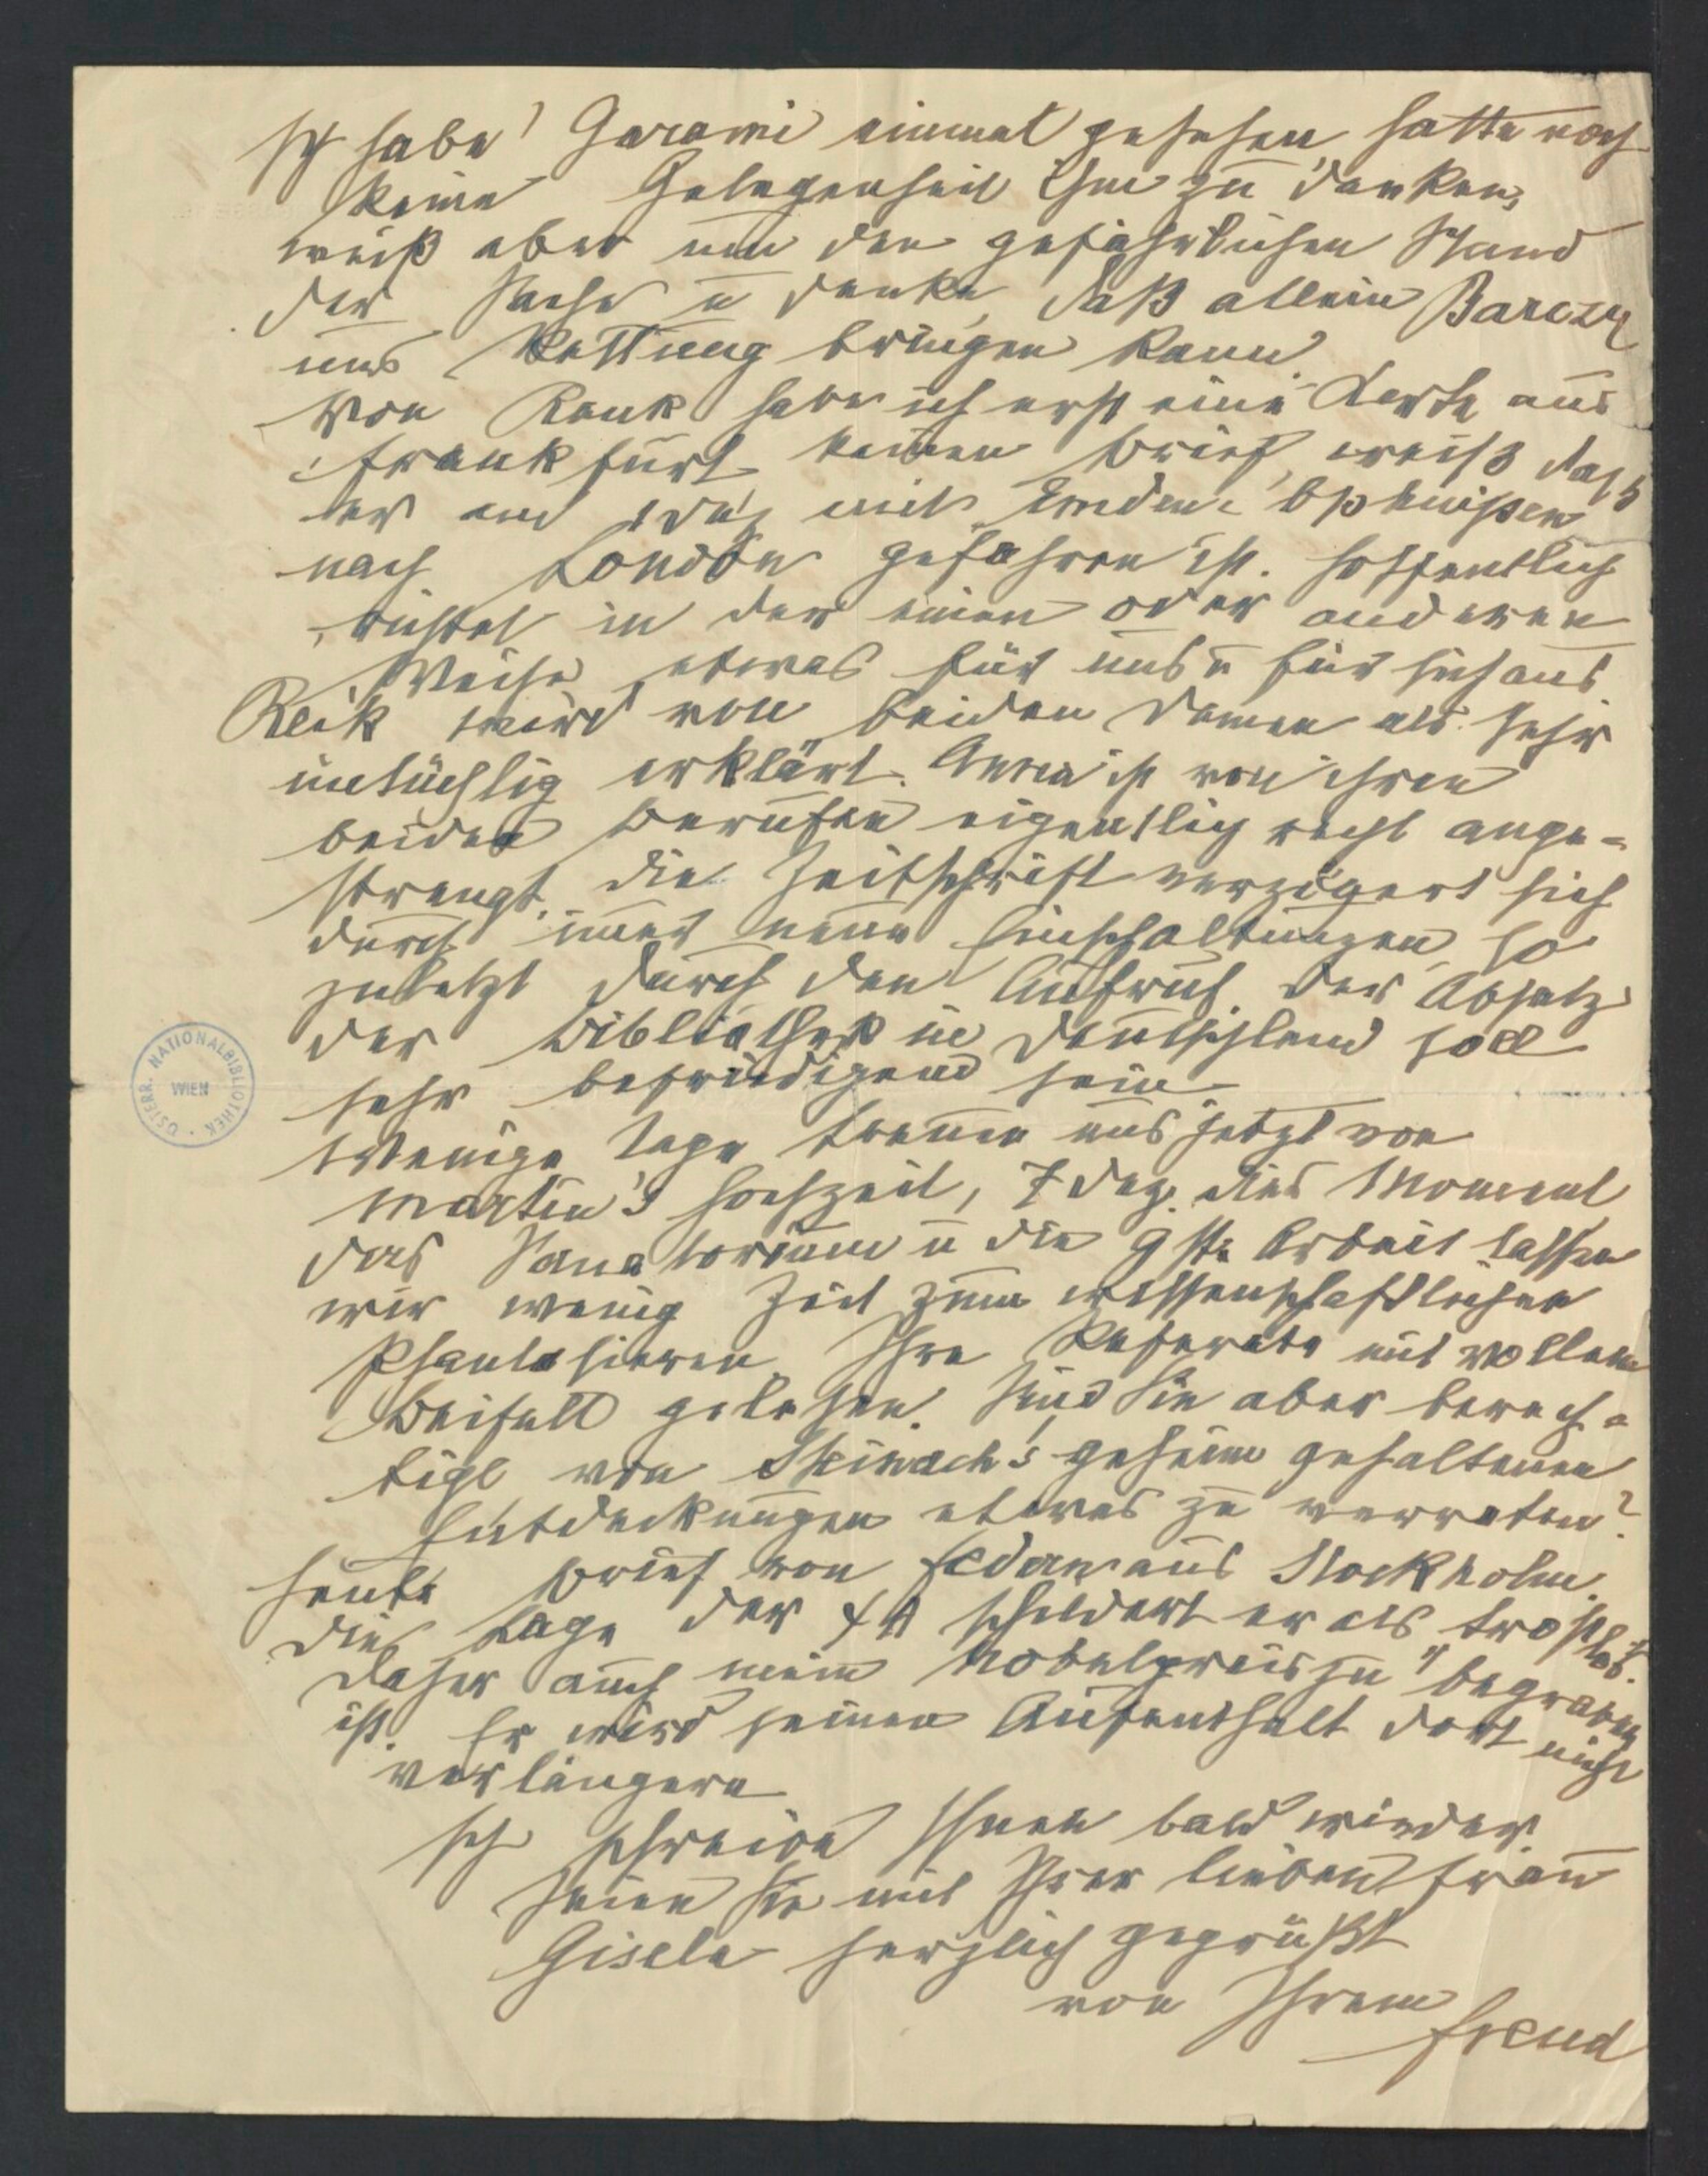 Ich habe Garami einmal gesehen hatte noch
keine Gelegenheit ihm zu danken,
weiß aber um den gefährlichen Stand
der Sache u denke, daß allein Barczy
uns Rettung bringen kann.
Von Rank habe ich erst eine Karte aus
Frankfurt keinen Brief, weiß daß
er am 1 Dez mit Emden Ophuijsen
nach London gefahren ist. Hoffentlich
richtet in der einen oder anderen
Weise etwas für uns u für sich aus.
Reik wird von beiden Damen als sehr
untüchtig erklärt. Anna ist von ihren
beiden Berufen eigentlich recht ange-
strengt. Die Zeitschrift verzögert sich
durch immer neue Einschaltungen, so
zuletzt durch den Aufruf. Der Absatz
der Bibliothek in Deutschland soll
sehr befriedigend sein.
Wenige Tage trennen uns jetzt von
Martin's Hochzeit, 7 Dez. Dies Moment
das Sanatorium u die 9 st. Arbeit lassen
mir wenig Zeit zum wissenschaftlichen
Phantasieren. Ihre Referate mit vollem
Beifall gelesen. Sind Sie aber berech-
tigt von Steinach's geheim gehaltenen
Entdeckungen etwas zu verraten?
Heute Brief von Federn aus Stockholm.
Die Lage der ΨA schildert er als trostlos.
Daher auch mein Nobelpreis zu begraben
ist. Er wird seinen Aufenthalt dort nicht
verlängern
Ich schreibe Ihnen bald wieder
Seien Sie mit Ihrer lieben Frau
Gisela herzlich gegrüßt
von Ihrem
Freud
ÖSTERR. NATIONALBIBLIOTHEK · WIEN